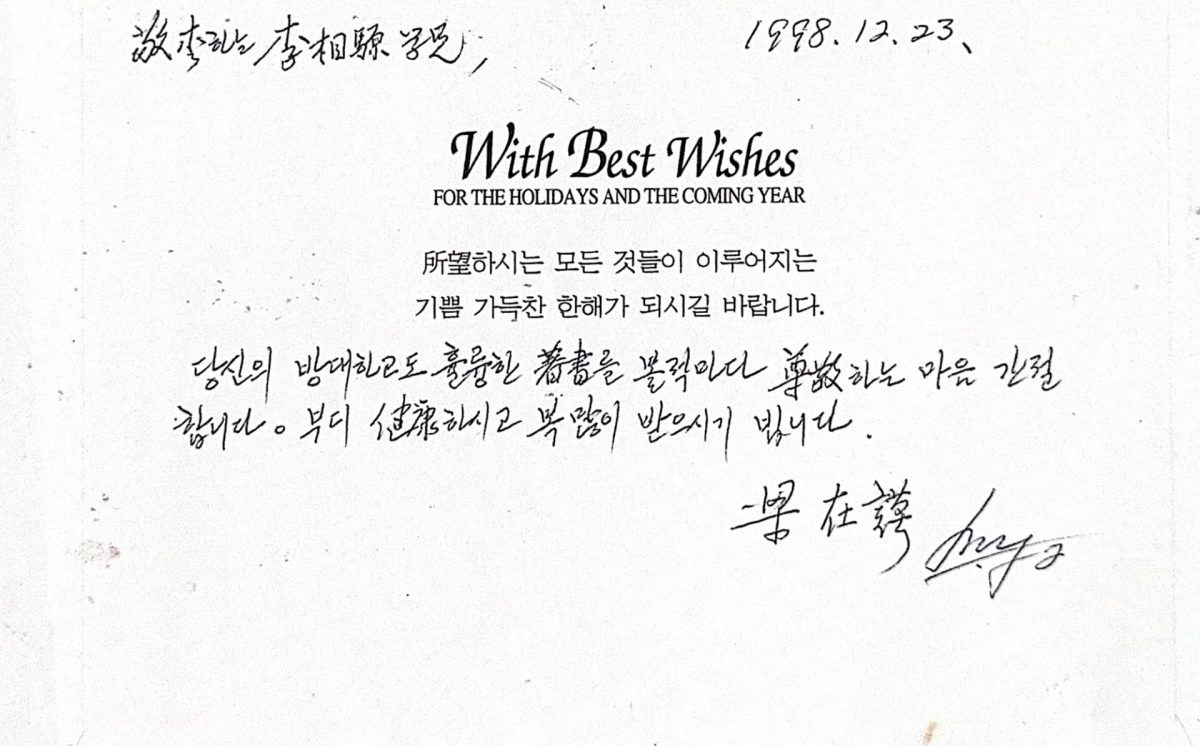 李相騵 学兄, 1998. 12. 23、
With Best Wishes
FOR THE HOLIDAYS AND THE COMING YEAR
所望하시는 모든 것들이 이루어지는
기쁨 가득찬 한해가 되시길 바랍니다.
당신의 방대하고도 훌륭한 著書를 볼적마다 尊敬하는 마음 간절
합니다。부디 健康하시고 복많이 받으시기 빕니다.
梁在謨